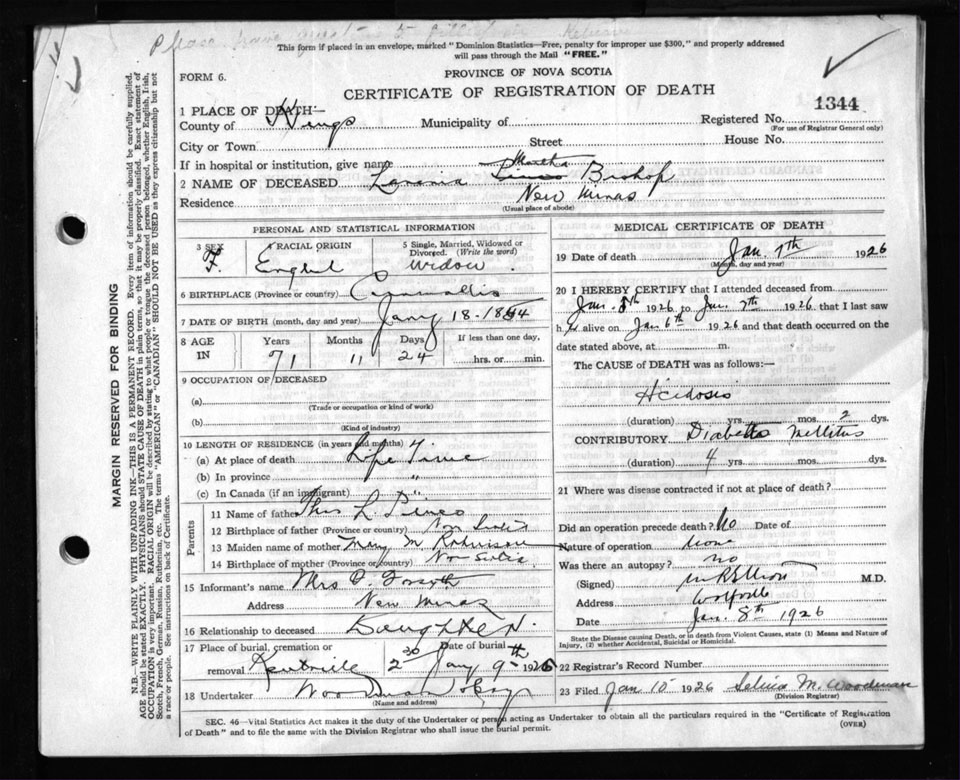 Please have
This form if placed in an envelope, marked "Dominion Statistics—Free, penalty for improper use $300," and properly addressed
will pass through the Mail "FREE."
FORM 6.
PROVINCE OF NOVA SCOTIA
CERTIFICATE OF REGISTRATION OF DEATH
1344
1 PLACE OF DEATH—
County of Kings Municipality of Registered No.
(For use of Registrar General only)
City or Town Street House No.
If in hospital or institution, give name
Martha
2 NAME OF DECEASED Lavania Bishop
Residence New Minas
(Usual place of abode)
PERSONAL AND STATISTICAL INFORMATION
3 SEX 4 RACIAL ORIGIN 5 Single, Married, Widowed or
Divorced. (Write the word)
F. English Widow
6 BIRTHPLACE (Province or country) Cornwallis
7 DATE OF BIRTH (month, day and year) Jany 18-1854
8 AGE IN Years Months Days If less than one day,
71 11 24 hrs. or min.
9 OCCUPATION OF DECEASED
(a)
(Trade or occupation or kind of work)
(b)
(Kind of industry)
10 LENGTH OF RESIDENCE (in years and months)
(a) At place of death Life Time
(b) In province "
(c) In Canada (if an immigrant) "
Parents
11 Name of father Thos L
12 Birthplace of father (Province or country) Nova Scotia
13 Maiden name of mother Mary M Robinson
14 Birthplace of mother (Province or country) Nov Scotia
15 Informant's name Mrs Forsyth
Address New Minas
16 Relationship to deceased Daughter
17 Place of burial, cremation or Date of burial
removal Kentville 2 30 Jany 9th 1926
18 Undertaker Woodman
(Name and address)
MEDICAL CERTIFICATE OF DEATH
19 Date of death Jan. 7th 1926
(Month, day and year)
20 I HEREBY CERTIFY that I attended deceased from
Jan. 5th 1926 to Jan. 7th 1926 that I last saw
h er alive on Jan 6th 1926 and that death occurred on the
date stated above, at m.
The CAUSE OF DEATH was as follows:—
Acidosis
(duration) yrs. mos. 2 dys.
CONTRIBUTORY Diabetes Mellitus
(duration) 4 yrs. mos. dys.
21 Where was disease contracted if not at place of death?
Did an operation precede death? No Date of
Nature of operation None
Was there an autopsy? no
(Signed) M R Elliott M.D.
Address Wolfville
Date Jan. 8th 1926
State the Disease causing Death, or in death from Violent Causes, state (1) Means and Nature of
Injury, (2) whether Accidental, Suicidal or Homicidal.
22 Registrar's Record Number
23 Filed Jan 10 1926 Selina M. Woodman
(Division Registrar)
SEC. 46—Vital Statistics Act makes it the duty of the Undertaker or person acting as Undertaker to obtain all the particulars required in the "Certificate of Registration
of Death" and to file the same with the Division Registrar who shall issue the burial permit.
(OVER)
MARGIN RESERVED FOR BINDING
N.B.—WRITE PLAINLY WITH UNFADING INK—THIS IS A PERMANENT RECORD. Every item of information should be carefully supplied.
AGE should be stated EXACTLY. PHYSICIANS should STATE CAUSE OF DEATH in plain terms, so that it may be properly classified. Exact statement of
OCCUPATION is very important. RACIAL ORIGIN will be described by stating to what people or tongue the deceased person belonged, whether English, Irish,
Scotch, French, German, Russian, Ruthenian, etc. The terms "AMERICAN" or "CANADIAN" SHOULD NOT BE USED as they express citizenship but not
a race or people. See instructions on back of Certificate.